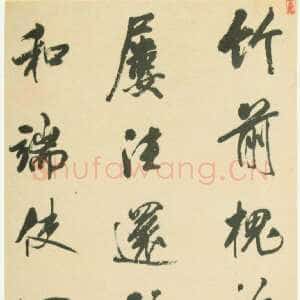 竹前槐
屢往還
和端使
shufawang.CN